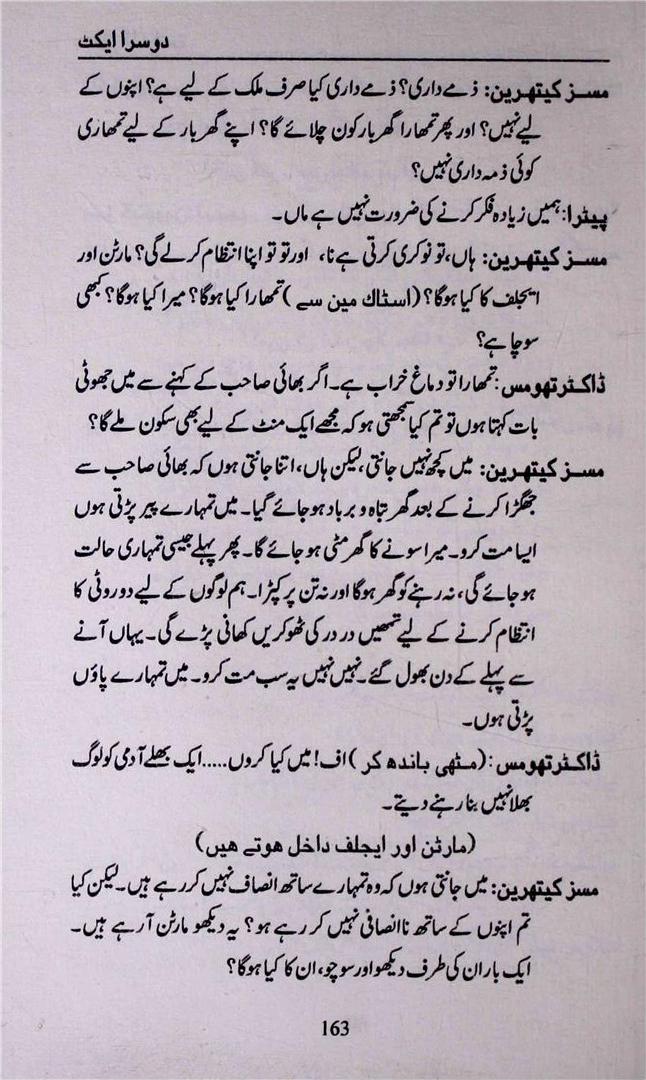 دوسرا ایکٹ
مسز کیتھرین: ذمے داری؟ ذمے داری کیا صرف ملک کے لیے ہے؟ اپنوں کے
لیے نہیں؟ اور پھر تمھارا گھر بار کون چلائے گا؟ اپنے گھر بار کے لیے تمھاری
کوئی ذمہ داری نہیں؟
پیٹرا: ہمیں زیادہ فکر کرنے کی ضرورت نہیں ہے ماں۔
مسز کیتھرین: ہاں، تو نوکری کرتی ہے نا، اور تو تو اپنا انتظام کر لے گی؟ مارٹن اور
ایجلف کا کیا ہوگا؟ (اسٹاک مین سے) تمھارا کیا ہوگا؟ میرا کیا ہوگا؟ کبھی
سوچا ہے؟
ڈاکٹر تھومس: تمھارا تو دماغ خراب ہے۔ اگر بھائی صاحب کے کہنے سے میں جھوٹی
بات کہتا ہوں تو تم کیا سمجھتی ہو کہ مجھے ایک منٹ کے لیے بھی سکون ملے گا؟
مسز کیتھرین: میں کچھ نہیں جانتی، لیکن ہاں، اتنا جانتی ہوں کہ بھائی صاحب سے
جھگڑا کرنے کے بعد گھر تباہ و برباد ہو جائے گیا۔ میں تمہارے پیر پڑتی ہوں
ایسا مت کرو۔ میرا سونے کا گھر مٹی ہو جائے گا۔ پھر پہلے جیسی تمہاری حالت
ہو جائے گی، نہ رہنے کو گھر ہوگا اور نہ تن پر کپڑا۔ ہم لوگوں کے لیے دو روٹی کا
انتظام کرنے کے لیے تمھیں در در کی ٹھوکریں کھانی پڑے گی۔ یہاں آنے
سے پہلے کے دن بھول گئے۔ نہیں نہیں یہ سب مت کرو۔ میں تمہارے پاؤں
پڑتی ہوں۔
ڈاکٹر تھومس: (مٹھی باندھ کر) اف! میں کیا کروں..... ایک بھلے آدمی کو لوگ
بھلا نہیں بنا رہنے دیتے۔
(مارٹن اور ایجلف داخل ہوتے ہیں)
مسز کیتھرین: میں جانتی ہوں کہ وہ تمہارے ساتھ انصاف نہیں کر رہے ہیں۔ لیکن کیا
تم اپنوں کے ساتھ ناانصافی نہیں کر رہے ہو؟ یہ دیکھو مارٹن آ رہے ہیں۔
ایک بار ان کی طرف دیکھو اور سوچو، ان کا کیا ہوگا؟
163